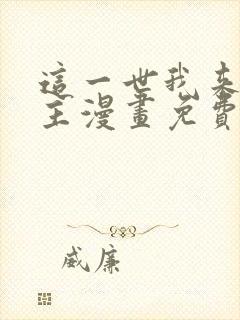 這一世我來
主漫畫免費
威廉